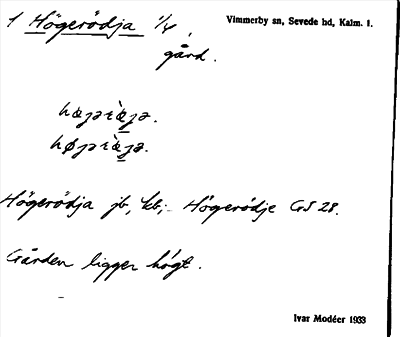 1 Högerödja 1/4, Vimmerby sn, Sevede hd, Kalm. l.
gård.
Högerödja jb, kb; Högerödje GS 28.
Gården ligger högt.
Ivar Modéer 1933